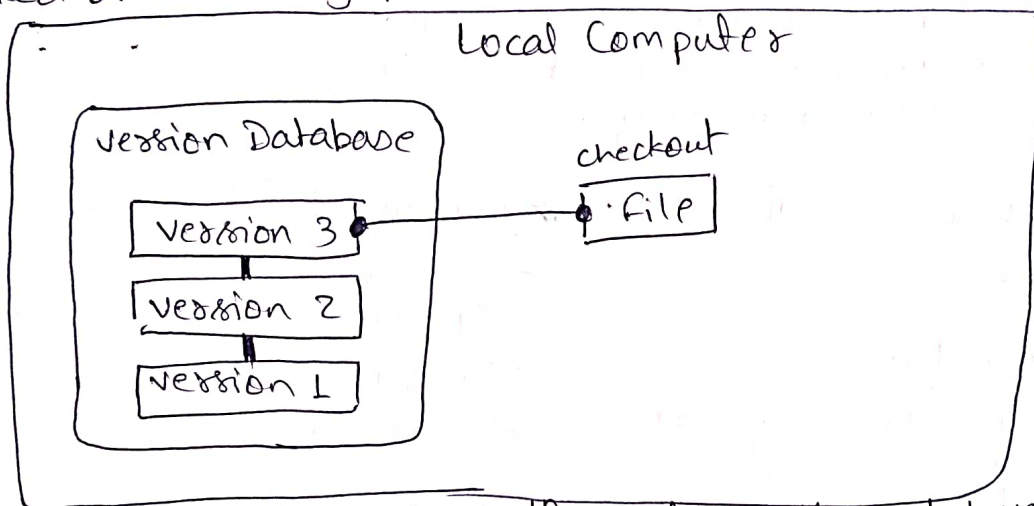 Local Computer
Version Database
checkout
Version 3
file
Version 2
Version 1